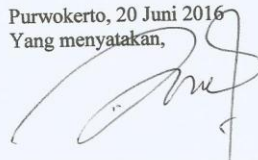 Purwokerto, 20 Juni 2016
Yang menyatakan,